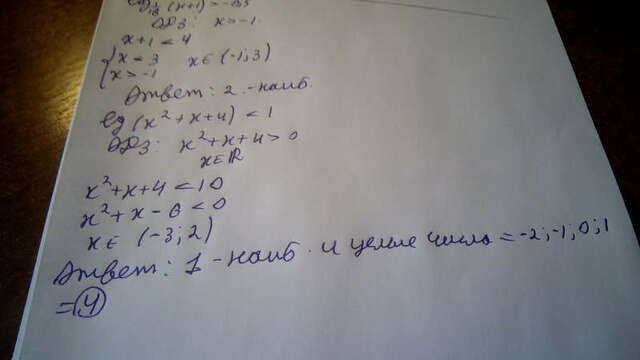 (x+1)
ОДЗ: x>-1
x+1<4
x<3 x∈(-1;3)
x>-1
Ответ: 2 - наиб.
lg(x²+x+4)<1
ОДЗ: x²+x+4>0
x∈R
x²+x+4<10
x²+x-6<0
x∈(-3;2)
Ответ: 1 - наиб. и целые числа = -2;-1;0;1
=4